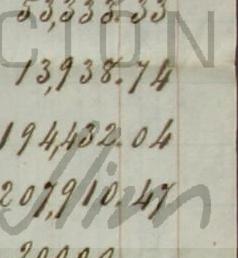 53,333.33
CION
13,938.74
194,432.04
207,910.47